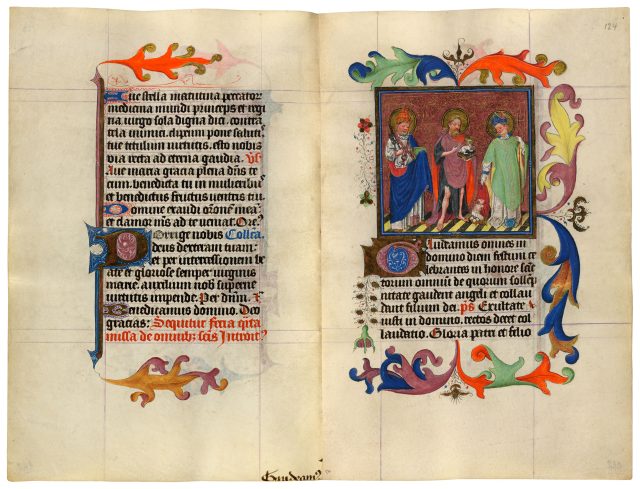 Aue stella matutina peccator
medicina mundi princeps et regi
na uirgo sola digna dici contra
tela inimici clipeum pone saluti
tue titulum uirtutis esto nobis
via recta ad eterna gaudia. vs
Aue maria gracia plena dn̄s te
cum. benedicta tu in mulieribꝫ
et benedictus fructus uentris tui
Domine exaudi or̄onem meā
et clamor m̄s ad te ueniat. Ore.
Porrige nobis Collc̄a
deus dexteram tuam:
et per intercessionem be
ate et gloriose semper uirginis
marie. auxilium nob̄ superne
uirtutis impende. Per dn̄m.
Benedicamus domino. Deo
gracias: Sequitur feria qͥta
missa de omnibꝫ sc̄is Introit
124
Gaudeamus omnes in
domino diem festum ce
lebrantes in honore sc̄c
torum omniū de quorum sollēp
nitate gaudent angeli et collau
dant filium dei. ps̄ Exultate
iusti in domino. rectos decet col
laudatio. Gloria patri et filio
Gaudeamꝰ